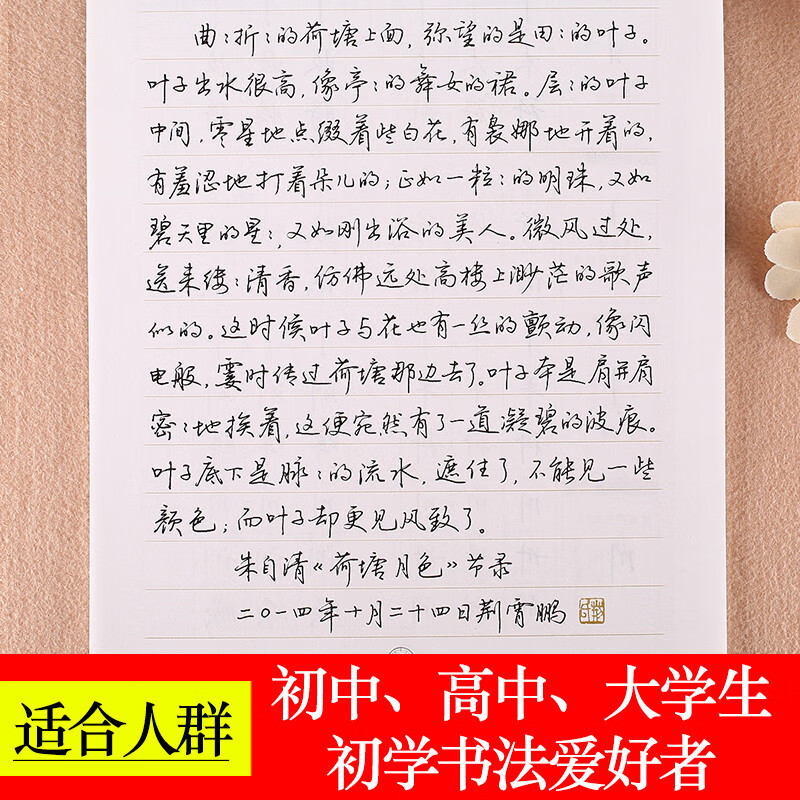 曲〻折〻的荷塘上面，弥望的是田〻的叶子。
叶子出水很高，像亭〻的舞女的裙。层〻的叶子
中间，零星地点缀着些白花，有袅娜地开着的，
有羞涩地打着朵儿的；正如一粒〻的明珠，又如
碧天里的星〻，又如刚出浴的美人。微风过处，
送来缕〻清香，仿佛远处高楼上渺茫的歌声
似的。这时候叶子与花也有一丝的颤动，像闪
电般，霎时传过荷塘那边去了。叶子本是肩并肩
密〻地挨着，这便宛然有了一道凝碧的波痕。
叶子底下是脉〻的流水，遮住了，不能见一些
颜色；而叶子却更见风致了。
朱自清《荷塘月色》节录
二〇一四年十月二十四日荆霄鹏
适合人群
初中、高中、大学生
初学书法爱好者